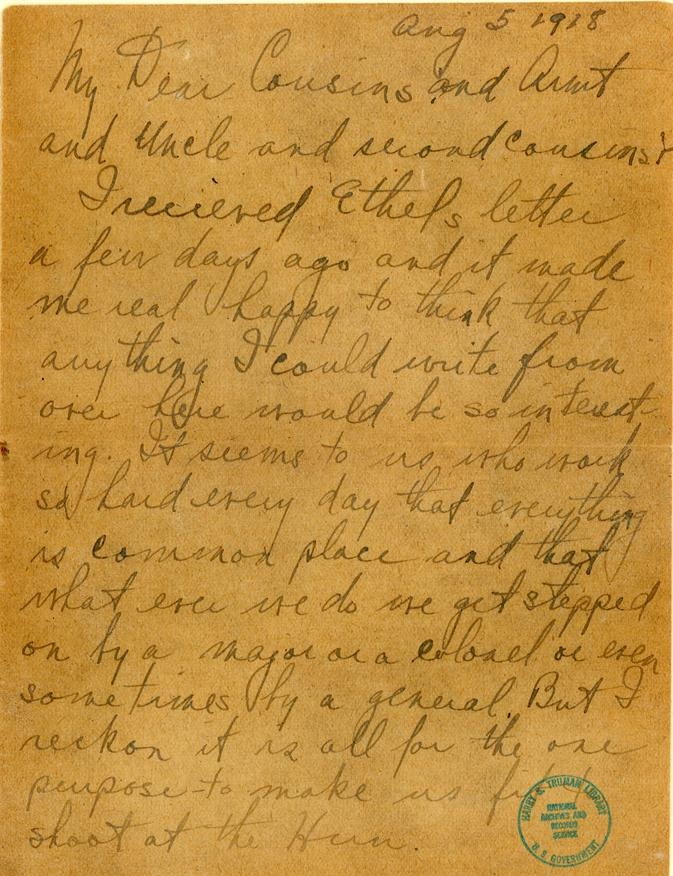 Aug 5 1918
My Dear Cousins and Aunt
and Uncle and second cousins:
I recieved Ethels letter
a few days ago and it made
me real happy to think that
anything I could write from
over here would be so interest-
ing. It seems to us who work
so hard every day that everything
is common place and that
what ever we do we get stepped
on by a major or a colonel or even
sometimes by a general. But I
reckon it is all for the one
purpose - to make us fit to
shoot at the Hun.
HARRY S. TRUMAN LIBRARY
NATIONAL
ARCHIVES AND
RECORDS
SERVICE
U. S. GOVERNMENT